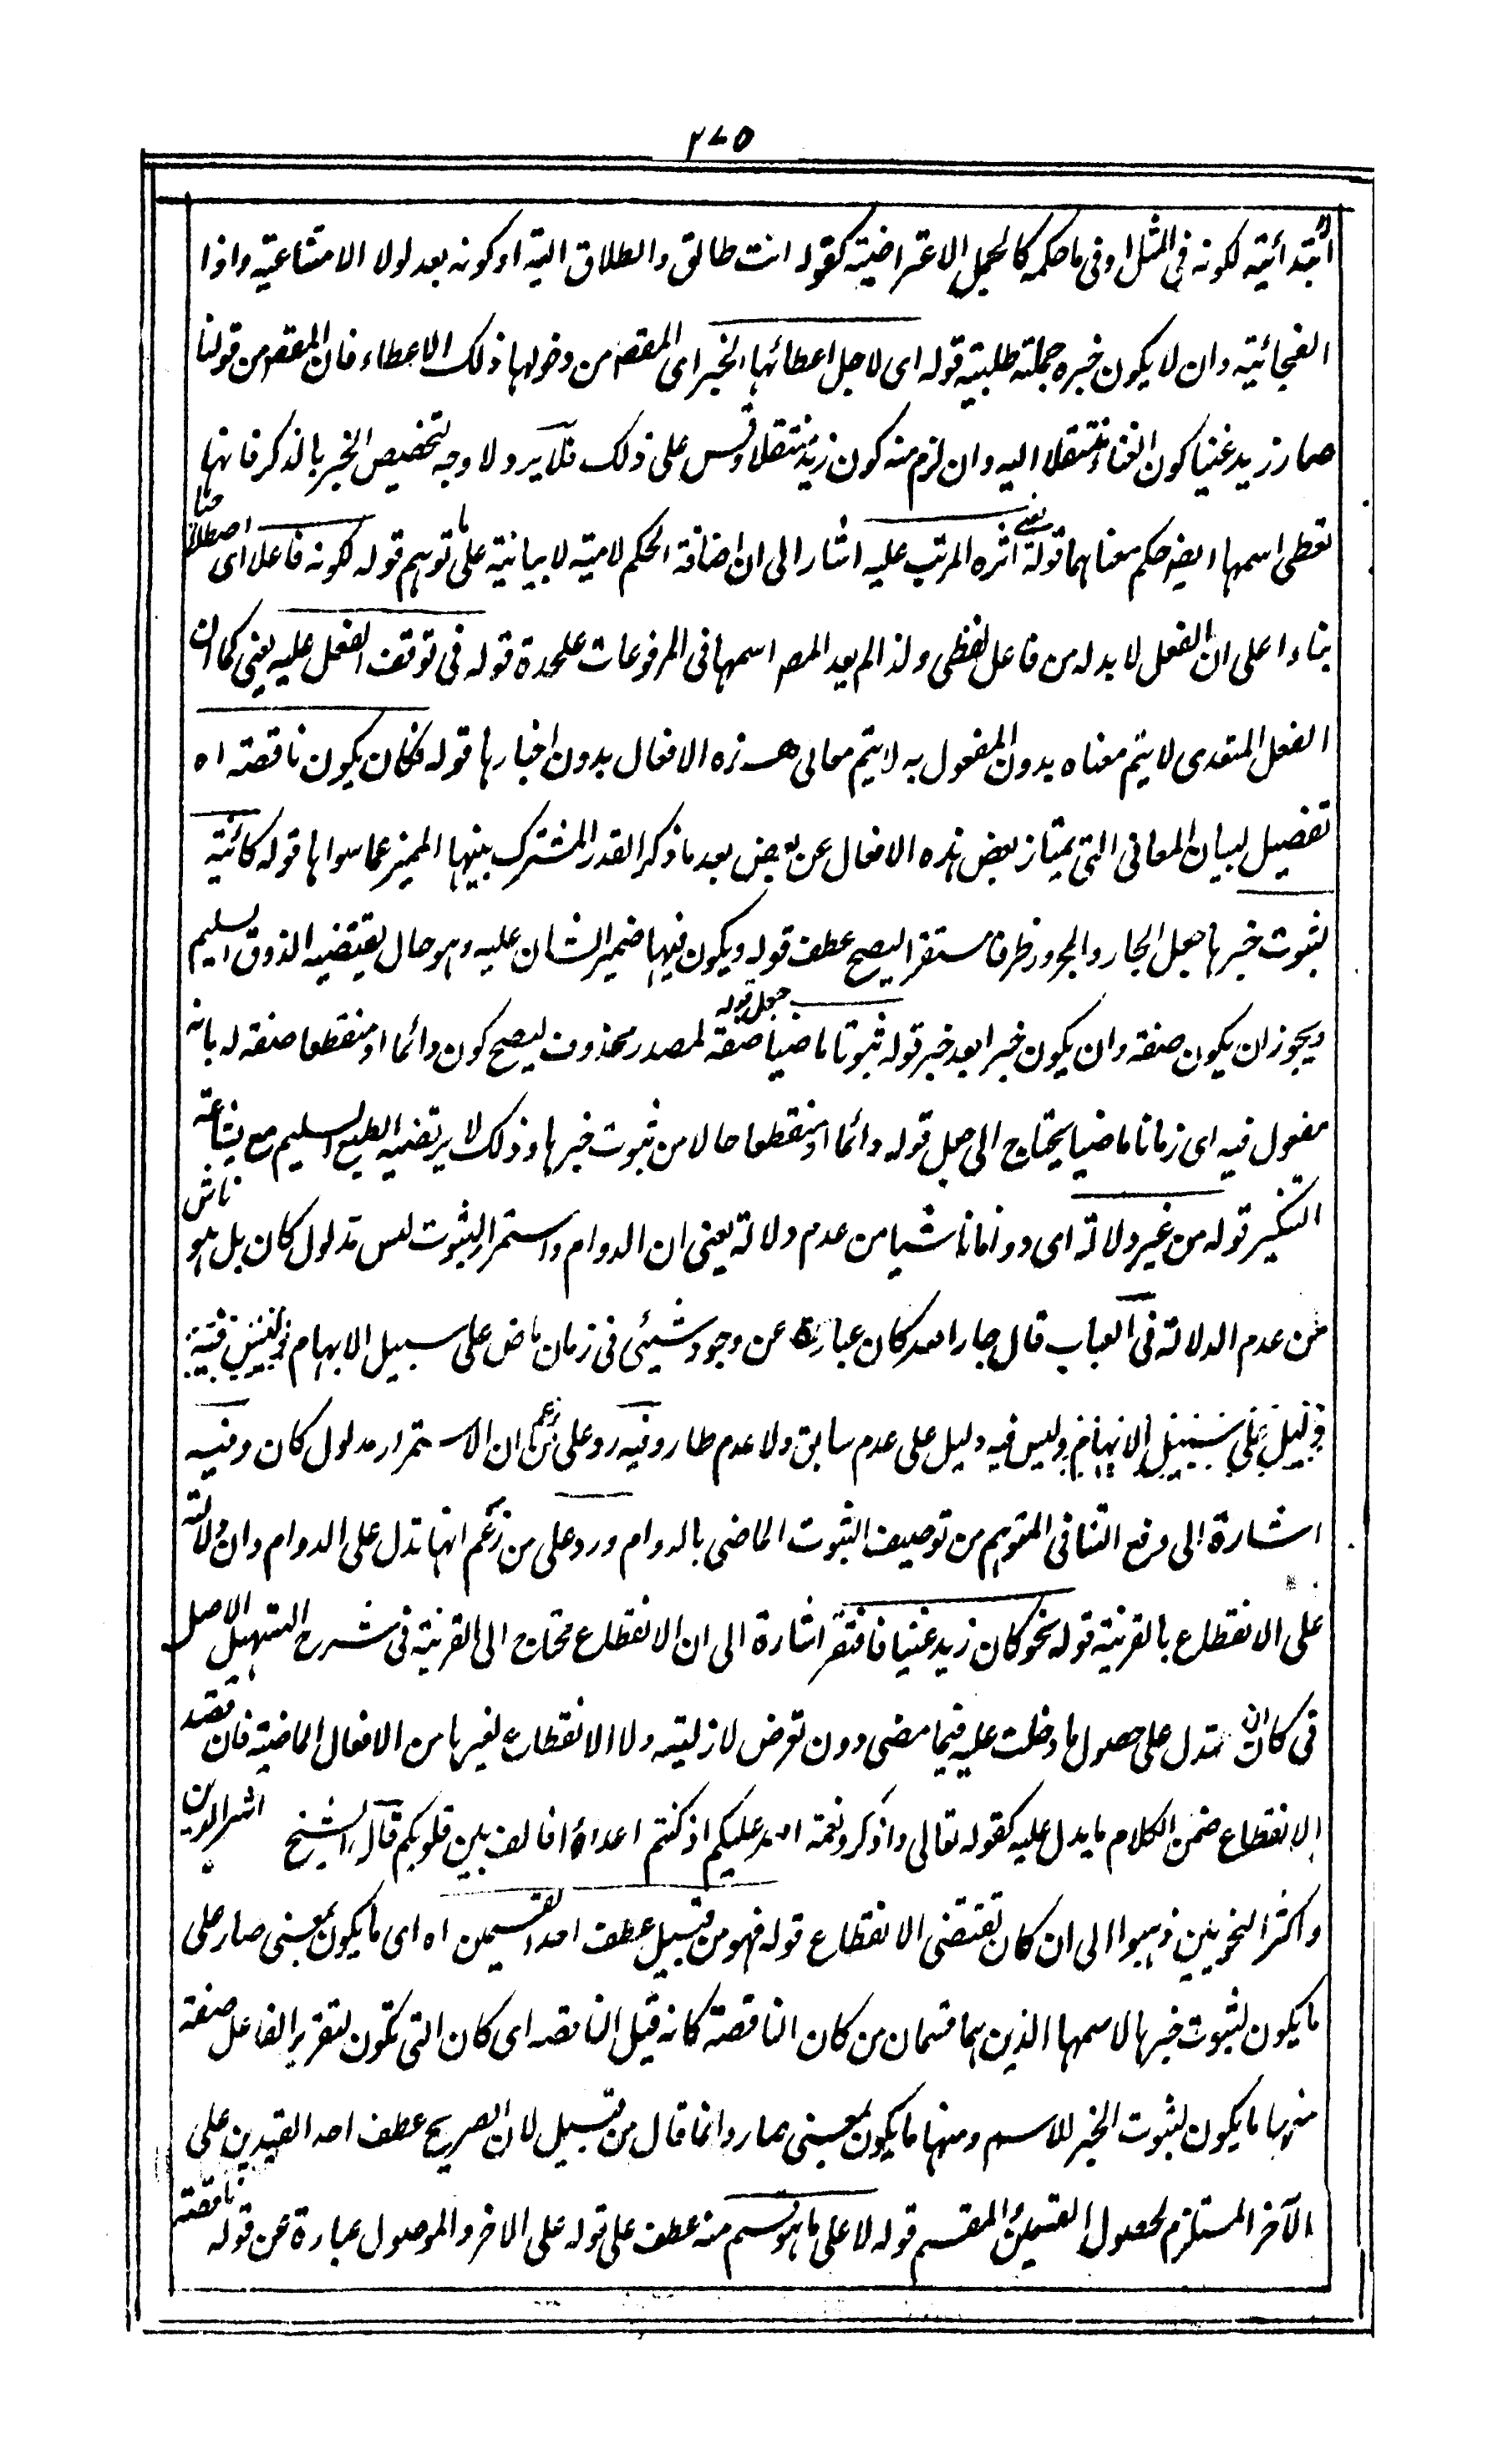 ٢٧٥
ابتدائية لكونه فى المثل او فى ما حكمه كالجمل الاعتراضية كقوله انت طالق والطلاق الية او كونه بعد لولا الامتناعية واذا
الفجائية وان لا يكون خبره جملة طلبية قوله اى لاجل اعطائها الخبر اى المقصم من دخولها ذلك الاعطاء فان المقصم من قولنا
صار زيد غنيا كون الغناء منتقلا اليه وان لزم منه كون زيد منتقلا وقس على ذلك فلا يرد ولا وجه لتخصيص الخبر بالذكر فانها
تعطى اسمها ايضا حكم معناهما قوله يعنى اثره المرتب عليه اشار الى ان اضافة الحكم لامية لا بيانية على ما توهم قوله لكونه فاعلا اى اصطلاحا
بناءا على ان الفعل لا بد له من فاعل لفظى ولذا لم يعد المصـ اسمها فى المرفوعات علحدة قوله فى توقف الفعل عليه يعنى كما ان
الفعل المتعدى لا يتم معناه بدون المفعول به لا يتم معانى هذه الافعال بدون اخبارها قوله فكان يكون ناقصة اه
تفصيل لبيان المعانى التى يمتاز بعض هذه الافعال عن بعض بعد ما ذكر القدر المشترك بينها المميز عما سواها قوله كائنة
لثبوت خبرها جعل الجار والمجرور ظرفا مستقرا ليصح عطف قوله ويكون فيها ضمير الشان عليه وهو حال يقتضيه الذوق السليم
ويجوز ان يكون صفة وان يكون خبرا بعد خبر قوله ثبوتا ماضيا جعل قوله صفة لمصدر محذوف ليصح كون دائما او منقطعا صفة له بانه
مفعول فيه اى زمانا ماضيا يحتاج الى جعل قوله دائما او منقطعا حالا من ثبوت خبرها وذلك لا يرتضيه الطبع السليم مع بشاعة
التنكير قوله من غير دلالة اى دواما ناشيا من عدم دلالة يعنى ان الدوام واستمرار الثبوت ليس مدلول كان بل هو ناش
من عدم الدلالة فى العباب قال جار الله كان عبارة عن وجود شيئ فى زمان ماض على سبيل الابهام وليس فيه
دليل على سبيل الابهام وليس فيه دليل على عدم سابق ولا عدم طار وفيه رد على من زعم ان الاستمرار مدلول كان وفيه
اشارة الى دفع التنافى المتوهم من توصيف الثبوت الماضى بالدوام ورد على من زعم انها تدل على الدوام وان دلالته
على الانقطاع بالقرينة قوله نحو كان زيد غنيا فافتقر اشارة الى ان الانقطاع محتاج الى القرينة فى شرح التسهيل الاصل
فى كان ان تدل على حصول ما دخلت عليه فيما مضى دون تعرض لازلية ولا الانقطاع لغيرها من الافعال الماضية فان قصد
الانقطاع ضمن الكلام ما يدل عليه كقوله تعالى واذكروا نعمة الله عليكم اذ كنتم اعداء فالف بين قلوبكم قال الشيخ اثير الدين
واكثر النحويين ذهبوا الى ان كان تقتضى الانقطاع قوله فهو من قبيل عطف احد القسمين اه اى ما يكون بمعنى صار على
ما يكون لثبوت خبرها لاسمها الذين هما قسمان من كان الناقصة كانه قيل الناقصة اى كان التى تكون لتقرير الفاعل صفة
منها ما يكون لثبوت الخبر للاسم ومنها ما يكون بمعنى صار وانما قال من قبيل لان الصريح عطف احد القيدين على
الآخر المستلزم لحصول القسمين المقسم قوله لا على ما هو قسم منه عطف على قوله على الاخر والموصول عبارة عن قوله ناقصة